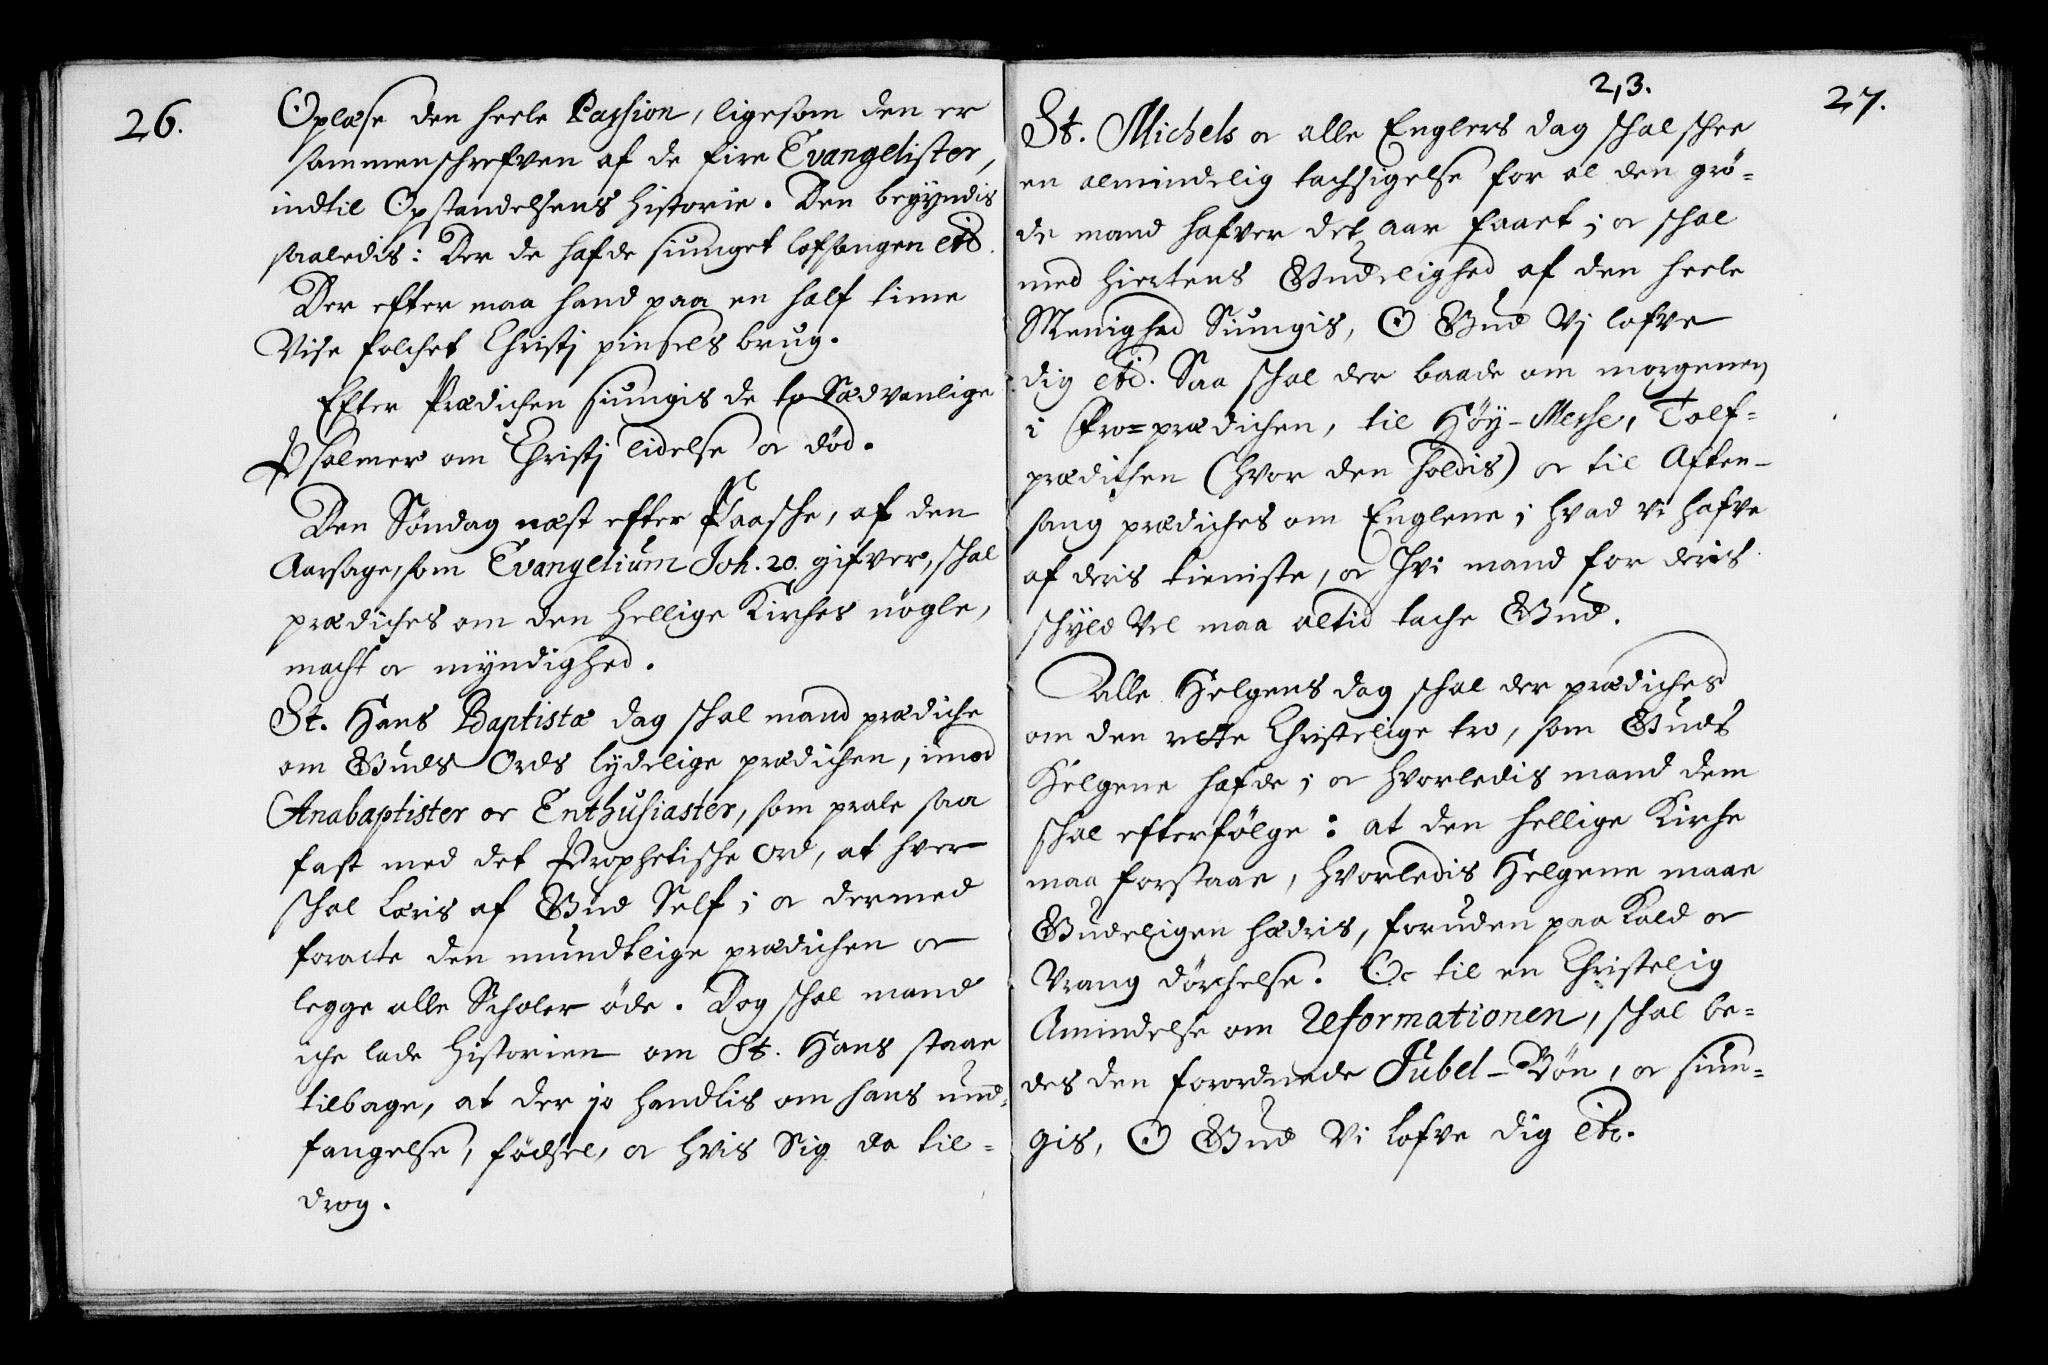 26.
Oplæse den heele Passion, ligesom den er
sammenschrefven af de fire Evangelister,
indtil Opstandelsens Historie. Den begyndis
saaledis: Der de hafde siunget lofsangen etc.
Der efter maa hand paa en half time
Vise folchet Christj pinsels brug.
Efter Prædichen siungis de to Sædvanlige
Psalmer om Christj lidelse oc død.
Den Søndag næst efter Paasche, af den
Aarsage, som Evangelium Joh. 20. gifver, schal
prædiches om den Hellige Kirches nögle,
macht oc mÿndighed.
St. Hans Baptistæ dag schal mand prædiche
om Guds Ords lydelige prædichen, imod
Anabaptister oc Enthusiaster, som prale saa
fast med det Prophetische Ord, at hver
schal læris af Gud Self; oc dermed
foracte den mundtlige prædichen oc
legge alle Scholer öde. Dog schal mand
iche lade Historien om St. Hans staae
tilbage, at der jo handlis om hans und-
fangelse, födsel, oc hvis Sig da til-
drog.
2,3.
27.
St. Michels oc alle Englers dag schal schee
en almindelig tachsigelse for al den grö-
de mand hafver det aar faaet; oc schal
med hiertens Gudelighed af den heele
Menighed Siungis, O Gud Vj lofve
dig etc. Saa schal der baade om morgenen
i Fro=prædichen, til Höy-Messe, Tolf-
prædichen (hvor den holdis) oc til Aften-
sang prædiches om Englene; hvad vi hafve
af deris tieniste, oc Hvi mand for deris
schyld Vel maa altid tache Gud.
Alle Helgens dag schal der prædiches
om den rette Christelige tro, som Guds
Helgene hafde; oc hvorledis mand dem
schal efterfölge: at den hellige Kirche
maa forstaae, hvorledis Helgene maae
Gudeligen hædris, foruden paa Kald oc
Vrang dörchelse. Oc til en Christelig
Amindelse om Reformationen, schal be-
des den forordnede Jubel-Bön, oc siun-
gis, O Gud Vi lofve dig etc.